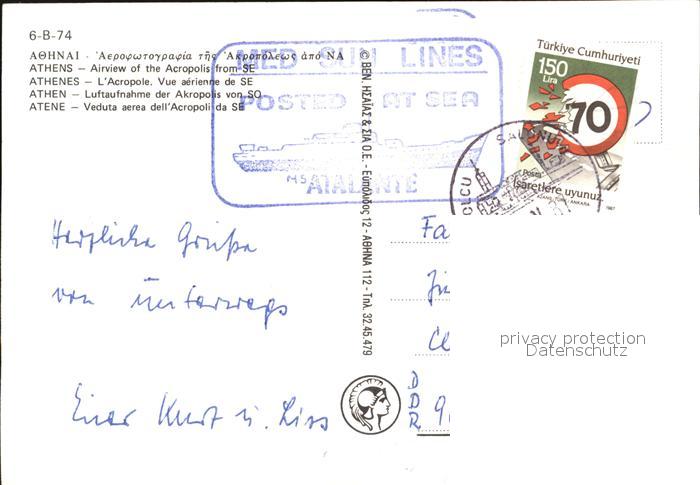 6-B-74
ΑΘΗΝΑΙ · Ἀεροφωτογραφία τῆς Ἀκροπόλεως ἀπό ΝΑ
ATHENS – Airview of the Acropolis from SE
ATHENES – L'Acropole. Vue aérienne de SE
ATHEN – Luftaufnahme der Akropolis von SO
ATENE – Veduta aerea dell'Acropoli da SE
MED SUN LINES
POSTED AT SEA
MS ATALANTE
© ΒΕΝ. ΗΣΑΪΑΣ & ΣΙΑ Ο.Ε. - Εὐπόλιδος 12 - ΑΘΗΝΑ 112 - Τηλ. 32.45.479
Türkiye Cumhuriyeti
150
Lira
70
Posta
İşaretlere uyunuz.
ANKARA 1987
Herzliche Grüße
von unterwegs
Euer Kurt u. Liss
Fa
DDR
privacy protection
Datenschutz